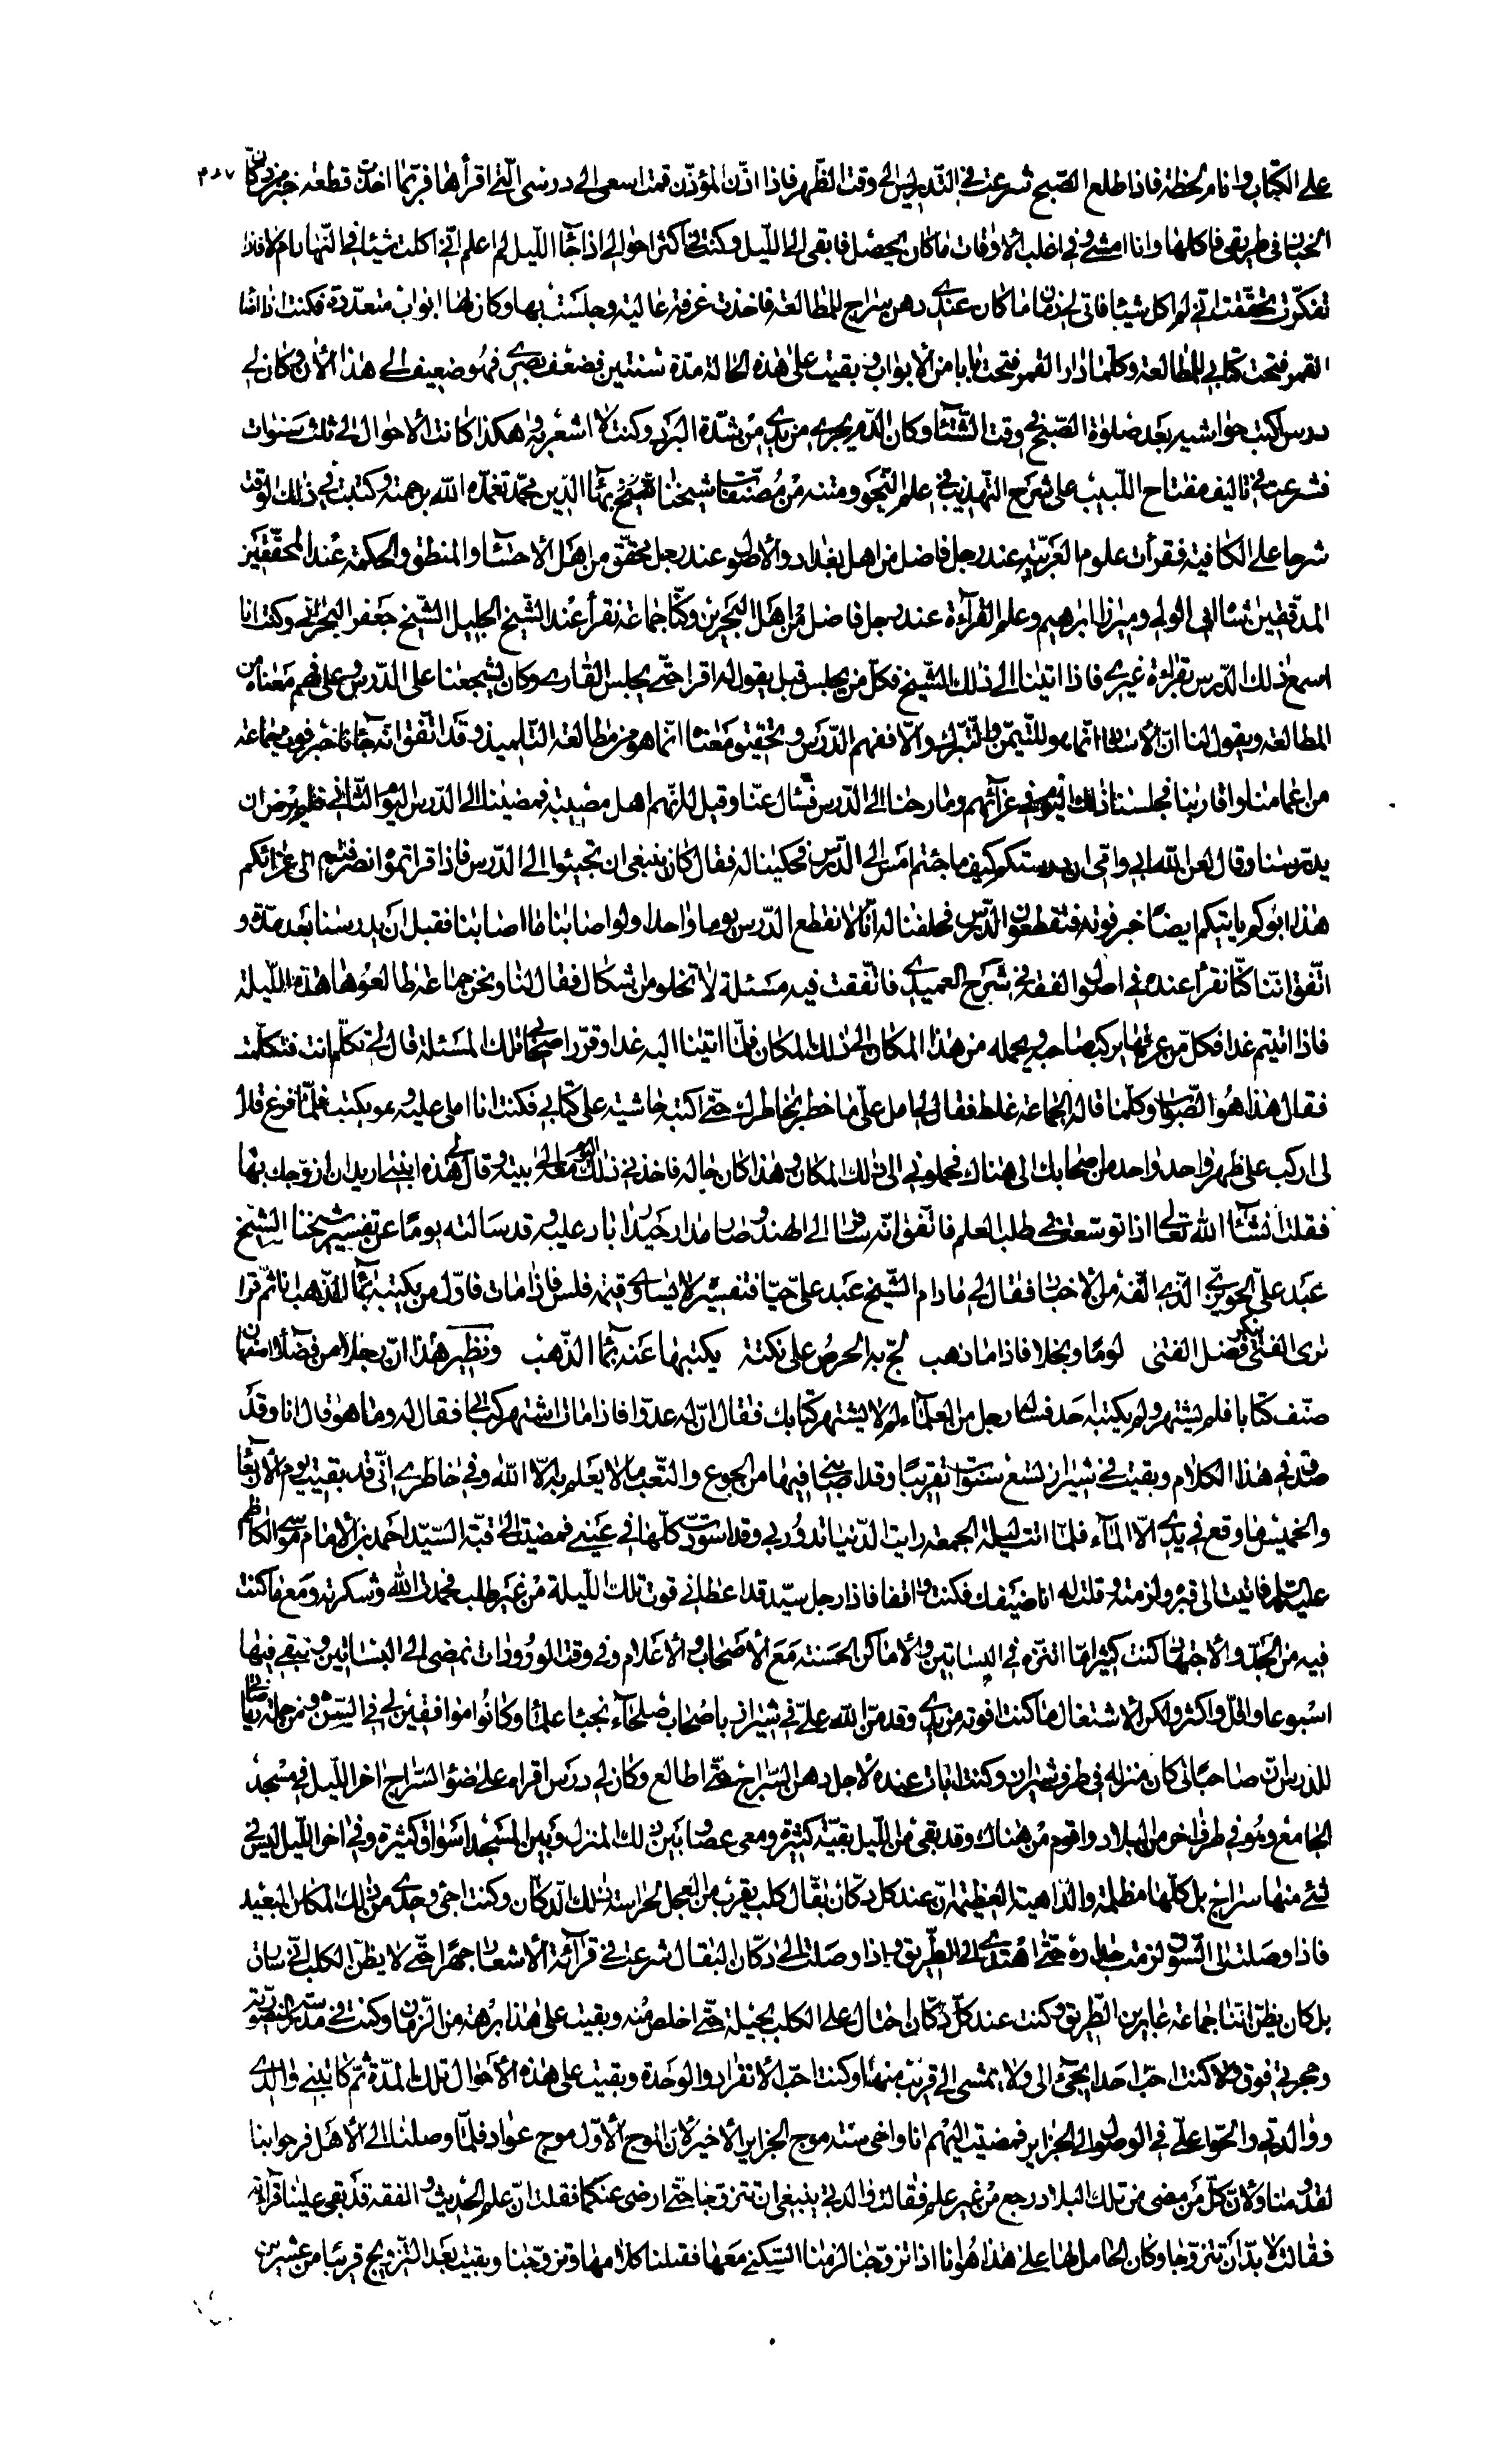 على الكتاب وانام لحظة فاذا طلع الصبح شرعت في التدريس الى وقت الظهر فاذا اذن المؤذن قمت اسعى الى درسى التي اقرأها فربما اخذت قطعة خبز من دكان ٣٠٧
الخباز في طريقي فاكلها وانا امشي وفي اغلب الاوقات ما كان يحصل فابقى الى الليل وكنت في اكثر احوالي اذا جاء الليل لم اعلم اني اكلت شيئا في النهار ام لا فاذا
تفكرت تحققت اني لم اكل شيئا فاتى لي زمان ما كان عندي دهن سراج للمطالعة فاخذت غرفة عالية وجلست بها وكان لها ابواب متعددة فكنت اذا اضاء
القمر فتحت كتابي للمطالعة وكلما دار القمر فتحت بابا من الابواب وبقيت على هذه الحالة مدة سنتين فضعف بصري فهو ضعيف الى هذا الان وكان لي
درس اكتب حواشيه بعد صلوة الصبح وقت الشتاء وكان الدم يجري من يدي من شدة البرد وكنت لا اشعر به وهكذا كانت الاحوال الى ثلث سنوات
فشرعت في تاليف مفتاح اللبيب على شرح التهذيب في علم النحو ومتنه من مصنفات شيخنا الشيخ بهاء الدين محمد تغمده الله برحمته وكتبت في ذلك الوقت
شرحا على الكافية فقرأت علوم العربية عند رجل فاضل من اهل بغداد والاصول عند رجل محقق من اهل الاحساء والمنطق والحكمة عند المحققين
المدققين شاه ابي الولي وميرزا ابرهيم وعلم القرآءة عند رجل فاضل من اهل البحرين وكنا جماعة نقرأ عند الشيخ الجليل الشيخ جعفر البحراني وكنت انا
اسمع ذلك الدرس بقراءة غيري فاذا اتينا الى ذلك الشيخ فكل من يجلس قبل يقول له اقرا حتى يجلس القاري وكان يشجعنا على الدرس وعلى فهم معناه من
المطالعة ويقول لنا ان الاستاد انما هو للتيمن والتبرك والا ففهم الدرس وتحقيق معناه انما هو من مطالعة التلميذ وقد اتفق انه جاءنا خبر فوت جماعة
من اعمامنا واقاربنا فجلسنا ذلك اليوم في عزائهم وما رحنا الى الدرس فسال عنا وقيل له انهم اهل مصيبة فمضينا الى الدرس اليوم الثاني فلم يرض ان
يدرسنا وقال لعن الله ابي وامي ان درستكم كيف ما جئتم امس الى الدرس فحكينا له فقال كان ينبغي ان تجيئوا الى الدرس فاذا قراتموه انصرفتم الى عزائكم
هذا ابوكم ياتيكم ايضا خبر فوته فتقطعون الدرس فحلفنا له انا لا نقطع الدرس يوما واحدا ولو اصابنا ما اصابنا فقبل ان يدرسنا بعد مدة و
اتفق اننا كنا نقرأ عنده في اصول الفقه في شرح العميدي فاتفقت فيه مسئلة لا تخلو من اشكال فقال لنا ونحن جماعة طالعوها هذه الليلة
فاذا اتيتم غدا فكل من عرفها يركب صاحبه ويحمله من هذا المكان الى ذلك المكان فلما اتينا اليه غدا وقرر اصحابي تلك المسئلة قال لي تكلم انت فتكلمت
فقال هذا هو الصواب وكلما قاله الجماعة غلط فقال لي امل علي ما خطر بخاطرك حتى اكتبه حاشية على كتابي فكنت انا املي عليه وهو يكتب فلما فرغ قال
لى اركب على ظهر واحد واحد من اصحابك الى هناك فحملوني الى ذلك المكان وهذا كان حاله فاخذني ذلك اليوم معه الى بيته وقال لي هذه ابنتي اريد ان ازوجك بها
فقلت انشاء الله تعالى اذا توسعت في طلب العلم فاتفق انه سافر الى الهند وصار مدار حيدر اباد عليه وقد سالته يوما عن تفسير شيخنا الشيخ
عبد علي الحويزي الذي الفه من الاخبار فقال لي ما دام الشيخ عبد علي حيا فتفسيره لا يساوي قيمة فلس فاذا مات فاول من يكتبه بماء الذهب انا ثم قرا
ترى الفتى ينكر فضل الفتى لوما وبخلا فاذا ما ذهب لج به الحرص على نكتة يكتبها عنه بماء الذهب ونظير هذا ان رجلا من فضلاء اصفهان
صنف كتابا فلم يشتهر ولم يكتبه احد فساله رجل من العلماء لم لا يشتهر كتابك فقال ان له عدوا فاذا مات اشتهر كتابي فقال له وما هو قال انا وقد
صدق في هذا الكلام وبقيت في شيراز تسع سنوات تقريبا وقد اصابني فيها من الجوع والتعب ما لا يعلم به الا الله وفي خاطري اني قد بقيت يوم الاربعاء
والخميس ما وقع في يدي الا الماء فلما اتت ليلة الجمعة رايت الدنيا تدور بي وقد اسودت كلها في عيني فمضيت الى قبة السيد احمد بن الامام موسى الكاظم
عليه السلم فاتيت الى قبره ولزمته وقلت له انا ضيفك فكنت واقفا فاذا رجل سيد قد اعطاني قوت تلك الليلة من غير طلب فحمدت الله وشكرته ومع ما كنت
فيه من الجد والاجتهاد كنت كثيرا ما اتنزه في البساتين والاماكن الحسنة مع الاصحاب والاعلام وفي وقت الورود كنا نمضى الى البساتين ونبقى فيها
اسبوعا واقل واكثر ولكن الاشتغال ما كنت افوته من يدي وقد من الله علي في شيراز باصحاب صلحاء نجباء علماء وكانوا موافقين لي في السن ومن جملة مصاحبتي
للدرس ان صاحبا لي كان منزله في طرف شيراز وكنت ابات عنده لاجل دهن السراج حتى اطالع وكان لي درس اقراه على ضوء السراج اخر الليل في مسجد
الجامع وهو في طرف اخر من البلاد واقوم من هناك وقد بقي من الليل بقية كثيرة ومعي عصا وبين ذلك المنزل وبين المسجد اسواق كثيرة وفي اخر الليل ليس في
شئ منها سراج بل كلها مظلمة والداهية العظيمة ان عند كل دكان بقال كلب يقرب من العجل لحراسة ذلك الدكان وكنت اجيء وحدي من ذلك المكان البعيد
فاذا وصلت الى السوق لزمت جداره حتى اهتدي الى الطريق واذا وصلت الى دكان البقال شرعت في قرائة الاشعار جهرا حتى لا يظن الكلب اني سارق
بل كان يظن اننا جماعة عابرين الطريق وكنت عند كل دكان احتال على الكلب بحيلة حتى اخلص منه وبقيت على هذا برهة من الزمان وكنت في مدرسة المنصورية
وحجرتي فوق ولا كنت احب احدا يجيء الى ولا يمشى الى قرب منها وكنت احب الانفراد والوحدة وبقيت على هذه الاحوال تلك المدة ثم كاتبني والدي
ووالدتي والحوا علي في الوصول الى الجزاير فمضيت اليهم انا واخي سنة موج الجزاير الاخير لان الموج الاول موج عواد فلما وصلنا الى الاهل فرحوا بنا
لقدومنا ولان كل من مضى من تلك البلاد رجع من غير علم فقالت والدتي ينبغي ان تتزوجا حتى ارضى عنكما فقلت ان علم الحديث والفقه قد بقي علينا قراءته
فقالت لا بد ان تتزوجا وكان الحامل لها على هذا هو انا اذا تزوجنا لزمنا السكنى معها فقبلنا كلامها وتزوجنا وبقيت بعد التزويج قريبا من عشرين